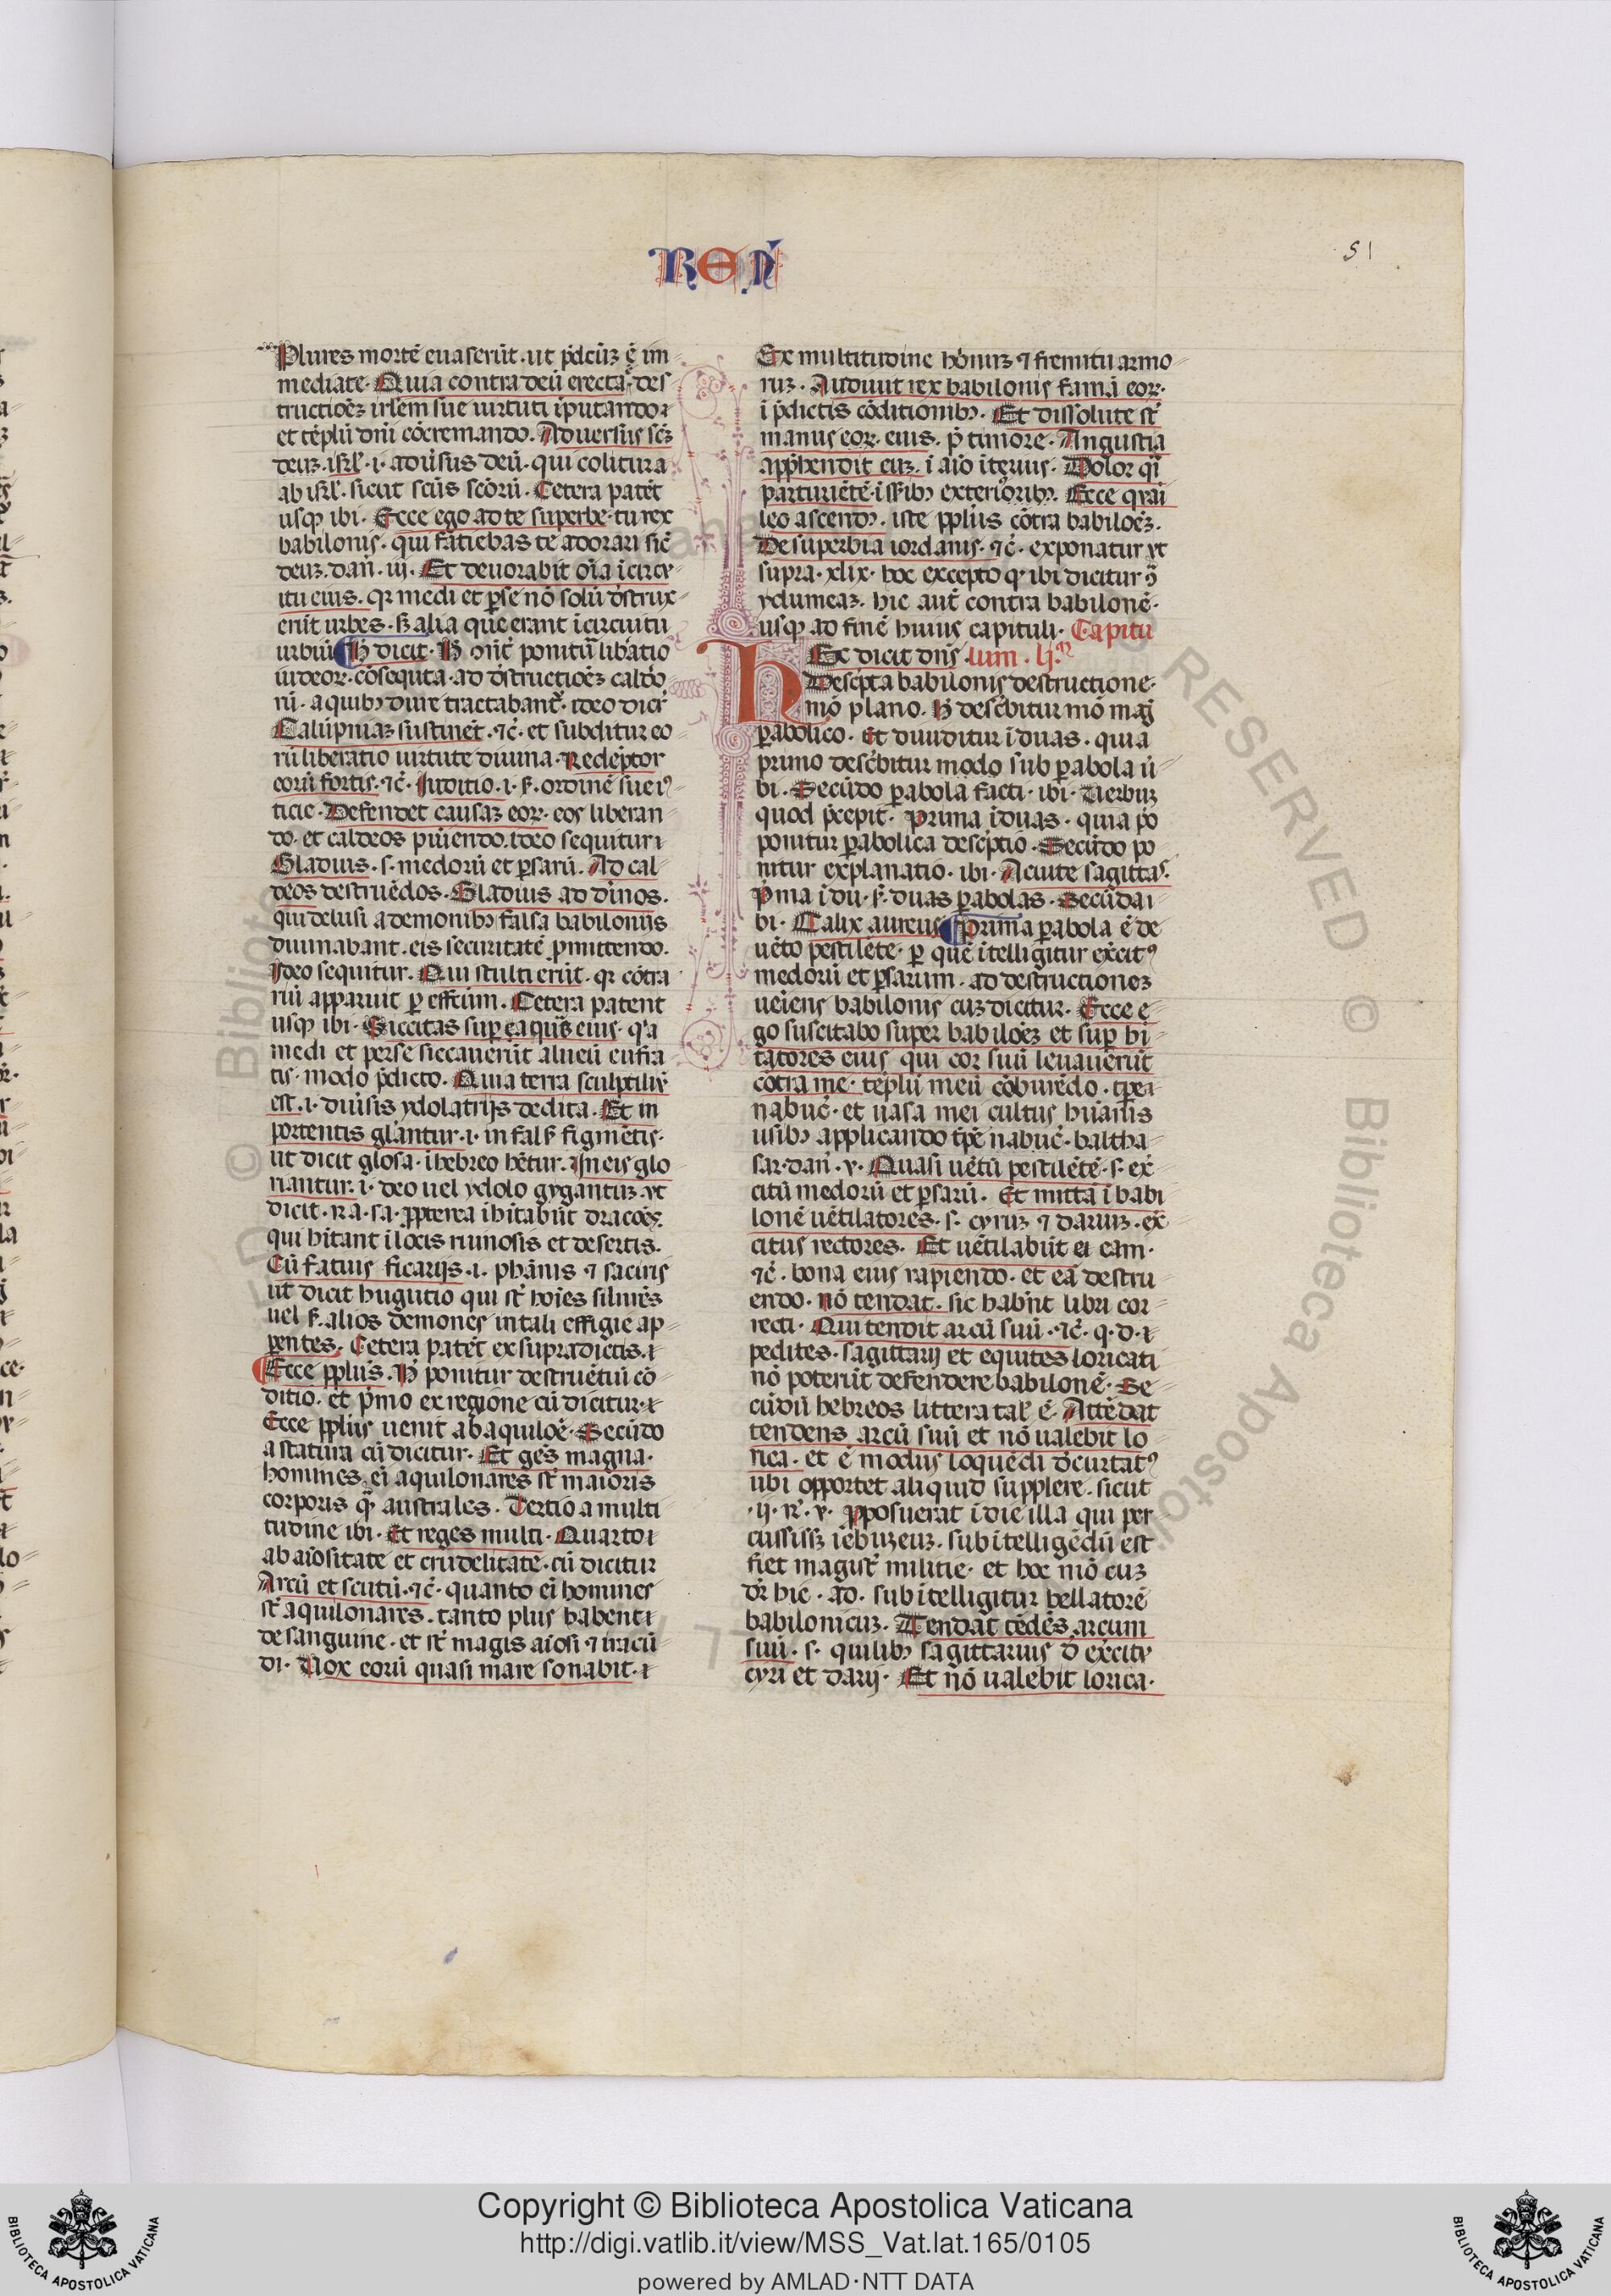 REM̄
51
Plures mortē euaserūt. ut p̄dcūꝫ ē im
mediate. Quia contra deū erecta. des
tructioēꝫ irlem sue uirtuti īputando ⁊
et tēplū dnī cōcremando. Aduersus scꝫ
deuꝫ. isrl̄. i. aduersus deū. qui colitur a
ab isrl̄. sicut scūs scōrū. Cetera patēt
usqꝫ ibi. Ecce ego ad te superbe. tu rex
babilonis. qui faciebas te adorari sic̄
deuꝫ. dan̄. iij. Et deuorabit oīa ī circu
itu eius. qr medi et ꝑse nō solū destrux
erūt urbes. sꝫ alia que erant ī circuitu
urbiū H̄ dicit. H̄ ponitur libatio
iudeoꝝ. cōsequta. ad destructioēꝫ caldeo
rū. a quibꝫ dure tractabant̄. ideo dicit
Calūpniaꝫ sustinet. ⁊c̄. et subditur eo
rū liberatio uirtute diuina. Redeptor
eorū fortis. ⁊c̄. Iuditio. i. s. ordinē sue iꝰ
ticie. Defendet causaꝫ eoꝝ. eos liberan
do. et caldeos puniendo. ideo sequitur ⁊
Gladius. s. medorū et ꝑsarū. Ad cal
deos destruēdos. Gladius ad diuinos.
qui delusi a demonibꝫ falsa babilonijs
diuinabant. eis securitatē ꝓmittendo.
Ideo sequitur. Qui stulti erūt. qr cōtra
riū apparuit ꝑ effectum. Cetera patent
usqꝫ ibi. Siccitas sup̄ aquas eius. qꝛa
medi et perse siccauerūt alueū eufra
tis. modo p̄dicto. Quia terra sculptiliū
est. i. diūsis ydolatrijs dedita. Et in
portentis gl̄antur. i. in fals̄ figmētis.
ut dicit glosa. ī hebreo hētur. In eis glo
riantur. i. deo uel ydolo gygantuꝫ. ut
dicit. ra. sa. ꝓpterea īhitabūt dracoēs.
qui hitant ī locis ruinosis et desertis.
Cū fatuis ficarijs. i. phānis ⁊ satiris
ut dicit hugutio qui st̄ hoīes siluiēs
uel s. alios demones in tali effigie ap
parentes. Cetera patēt ex supradictis. ⁊
Ecce pplūs. H̄ ponitur destruētiū cō
ditio. et p̄mo ex regione cū dicitur. ⁊
Ecce pplūs uenit ab aquiloē. Secūdo
a statura cū dicitur. Et gēs magna.
homines eī aquilonares st̄ maioris
corporis qͣm australes. Tertio a multi
tudine ibi. Et reges multi. Quarto ⁊
ab aīositate et crudelitate. cū dicitur
Arcū et scutū. ⁊c̄. quanto eī homines
st̄ aquilonares. tanto plus habent ⁊
de sanguine. et st̄ magis aīosi ⁊ iracū
di. Uox eorū quasi mare sonabit. ⁊
Ex multitudine hōinuꝫ ⁊ fremitu armo
ruꝫ. Audiuit rex babilonis famā eoꝝ.
ī p̄dictis cōditionibꝫ. Et dissolute st̄
manus eoꝝ. eius. p̄ timore. Angustia
app̄hendit euꝫ. ī aīo īterius. Dolor qͣi
parturiētē. exterioribꝫ. Ecce qͣi
leo ascendꝫ. iste pplūs cōtra babiloēꝫ.
De superbia iordanis. ⁊c̄. exponatur ut
supra. xlix. hoc excepto qꝛ ibi dicitur ꝯ̄
ydumeaꝫ. hic aut̄ contra babilonē.
usqꝫ ad finē huius capituli. Capitu
Ec dicit dnūs. lum. lj.ᵐ
Descp̄ta babilonis destructione.
mō plano. H̄ describitur mō maḡ
ꝑabolico. Et diuiditur ī duas. quia
primo describitur modo sub ꝑabola ū
bi. Secūdo ꝑabola facti. ibi. Uerbuꝫ
quod p̄cepit. Prima ī duas. quia p̄o
ponitur ꝑabolica descp̄tio. Secūdo po
nitur explanatio. ibi. Acuite sagittas.
P̄ma ī du. s. duas ꝑabolas. Secūda ī
bi. Calix aureus Prima ꝑabola ē de
uēto pestilēte. ꝑ quē ītelligitur ex̄citꝰ
medorū et ꝑsarum. ad destructioneꝫ
ueīens babilonis cuꝫ dicitur. Ecce e
go suscitabo super babiloēꝫ et sup̄ hī
tatores eius qui cor suū leuauerūt
cōtra me. tēplū meū cōburēdo. tpe ⁊
nabuc̄. et uasa mei cultus hūanis
usibꝫ applicando tpē nabuc̄. baltha
sar. dan̄. v. Quasi uētū pestilētē. s. ex̄
citū medorū et ꝑsarū. Et mittā ī babi
lonē uētilatores. s. cyruꝫ ⁊ dariuꝫ. ex̄
citus rectores. Et uētilabūt eam.
⁊c̄. bona eius rapiendo. et eā destru
endo. nō tendat. sic habn̄t libri cor
recti. Qui tendit arcū suū. ⁊c̄. q. d. ⁊
pedites. sagittarij et equites loricati
nō poterūt defendere babilonē. Se
cūdū hebreos littera tal̄ ē. Attēdat
tendens arcū suū et nō ualebit lo
rica. et ē modus loquēdi decurtatꝰ
ubi opportet aliquid supplere. sicut
.ij. rͤ. v. ꝓposuerat ī die illa qui per
cussisꝫ iebuzeuꝫ. sub ītelligēdū est
fiet magist̄ militie. et hoc mō cuꝫ
dr̄ hic. ad. sub ītelligitur bellatorē
babilonicuꝫ. Tendat tēdēs arcum
suū. s. quilibꝫ sagittarius d̄ ex̄citu
cyri et darij. Et nō ualebit lorica.
© Biblioteca Apostolica Vaticana
RESERVED
Copyright © Biblioteca Apostolica Vaticana
http://digi.vatlib.it/view/MSS_Vat.lat.165/0105
powered by AMLAD·NTT DATA
BIBLIOTECA APOSTOLICA VATICANA
BIBLIOTECA APOSTOLICA VATICANA